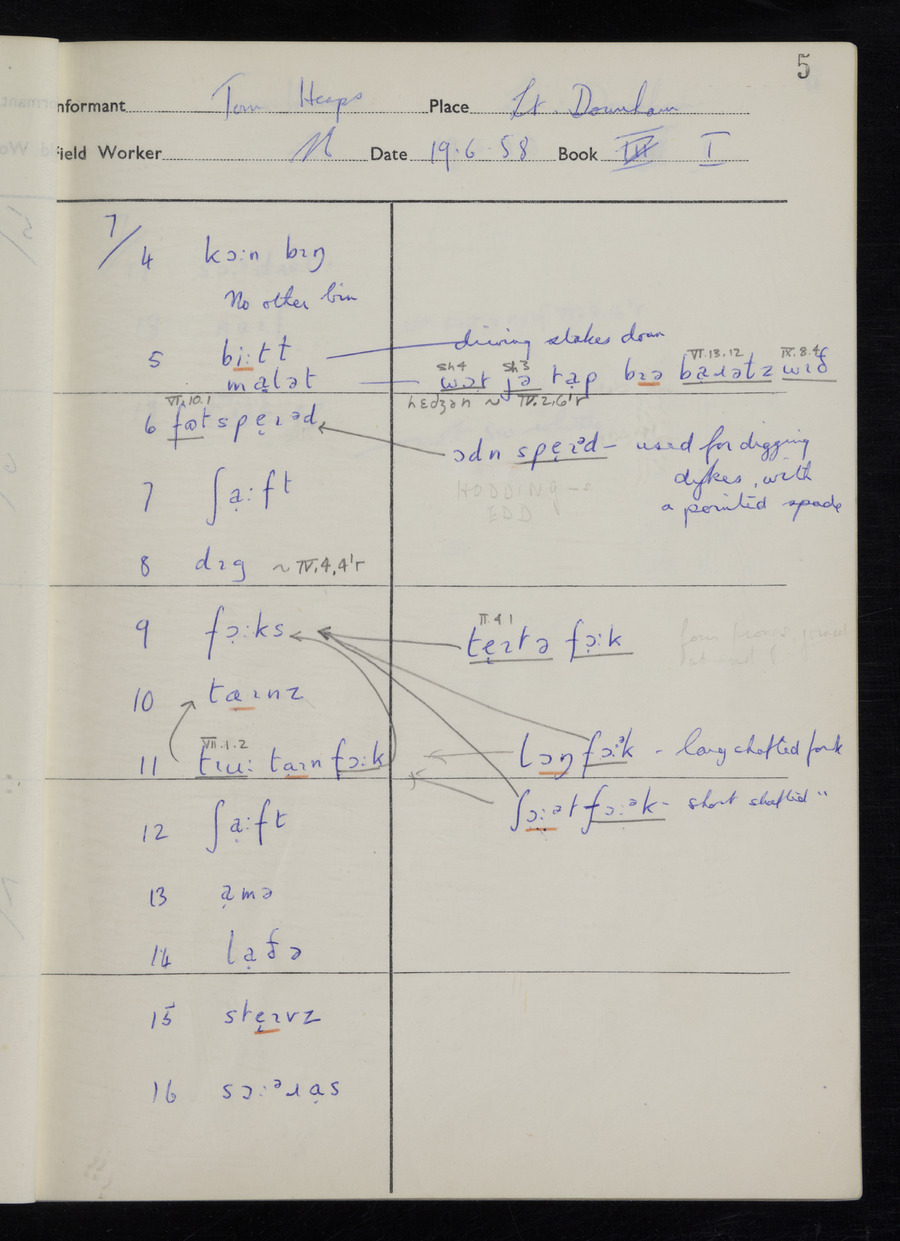 5
nformant Tom Heaps Place Lt. Downham
ield Worker Date 19.6.58 Book III I
7/
4 kɔ:n bɪŋ
No other bin
5 bi:tt driving stakes down
mạlət
sh4 sh3 VI.13.12 IV.8.4
wɔt jə tạp bɪə bạɹətz wɪð
hɛdʒən ~ IV.2,6'r
VI.10.1
6 fʊtspẹɪəd
ɔdn spẹɪᵊd – used for digging
dykes, with
a pointed spade
HODDING
7 ʃạ:ft
8 dɪg ~ IV.4,4'r
9 fɔ̣:ks
II.4.1
tẹɪtə fɔ̣:k
10 taɪnz
VII.1.2
11 tɪu: taɪn fɔ:k
lɒŋ fɔ:ᵊk – long shafted fork
ʃɔ:ət fɔ:ᵊk – short shafted "
12 ʃạ:ft
13 ạmə
14 lạðə
15 stẹɪvz
16 sɔ:ᵊɹạs